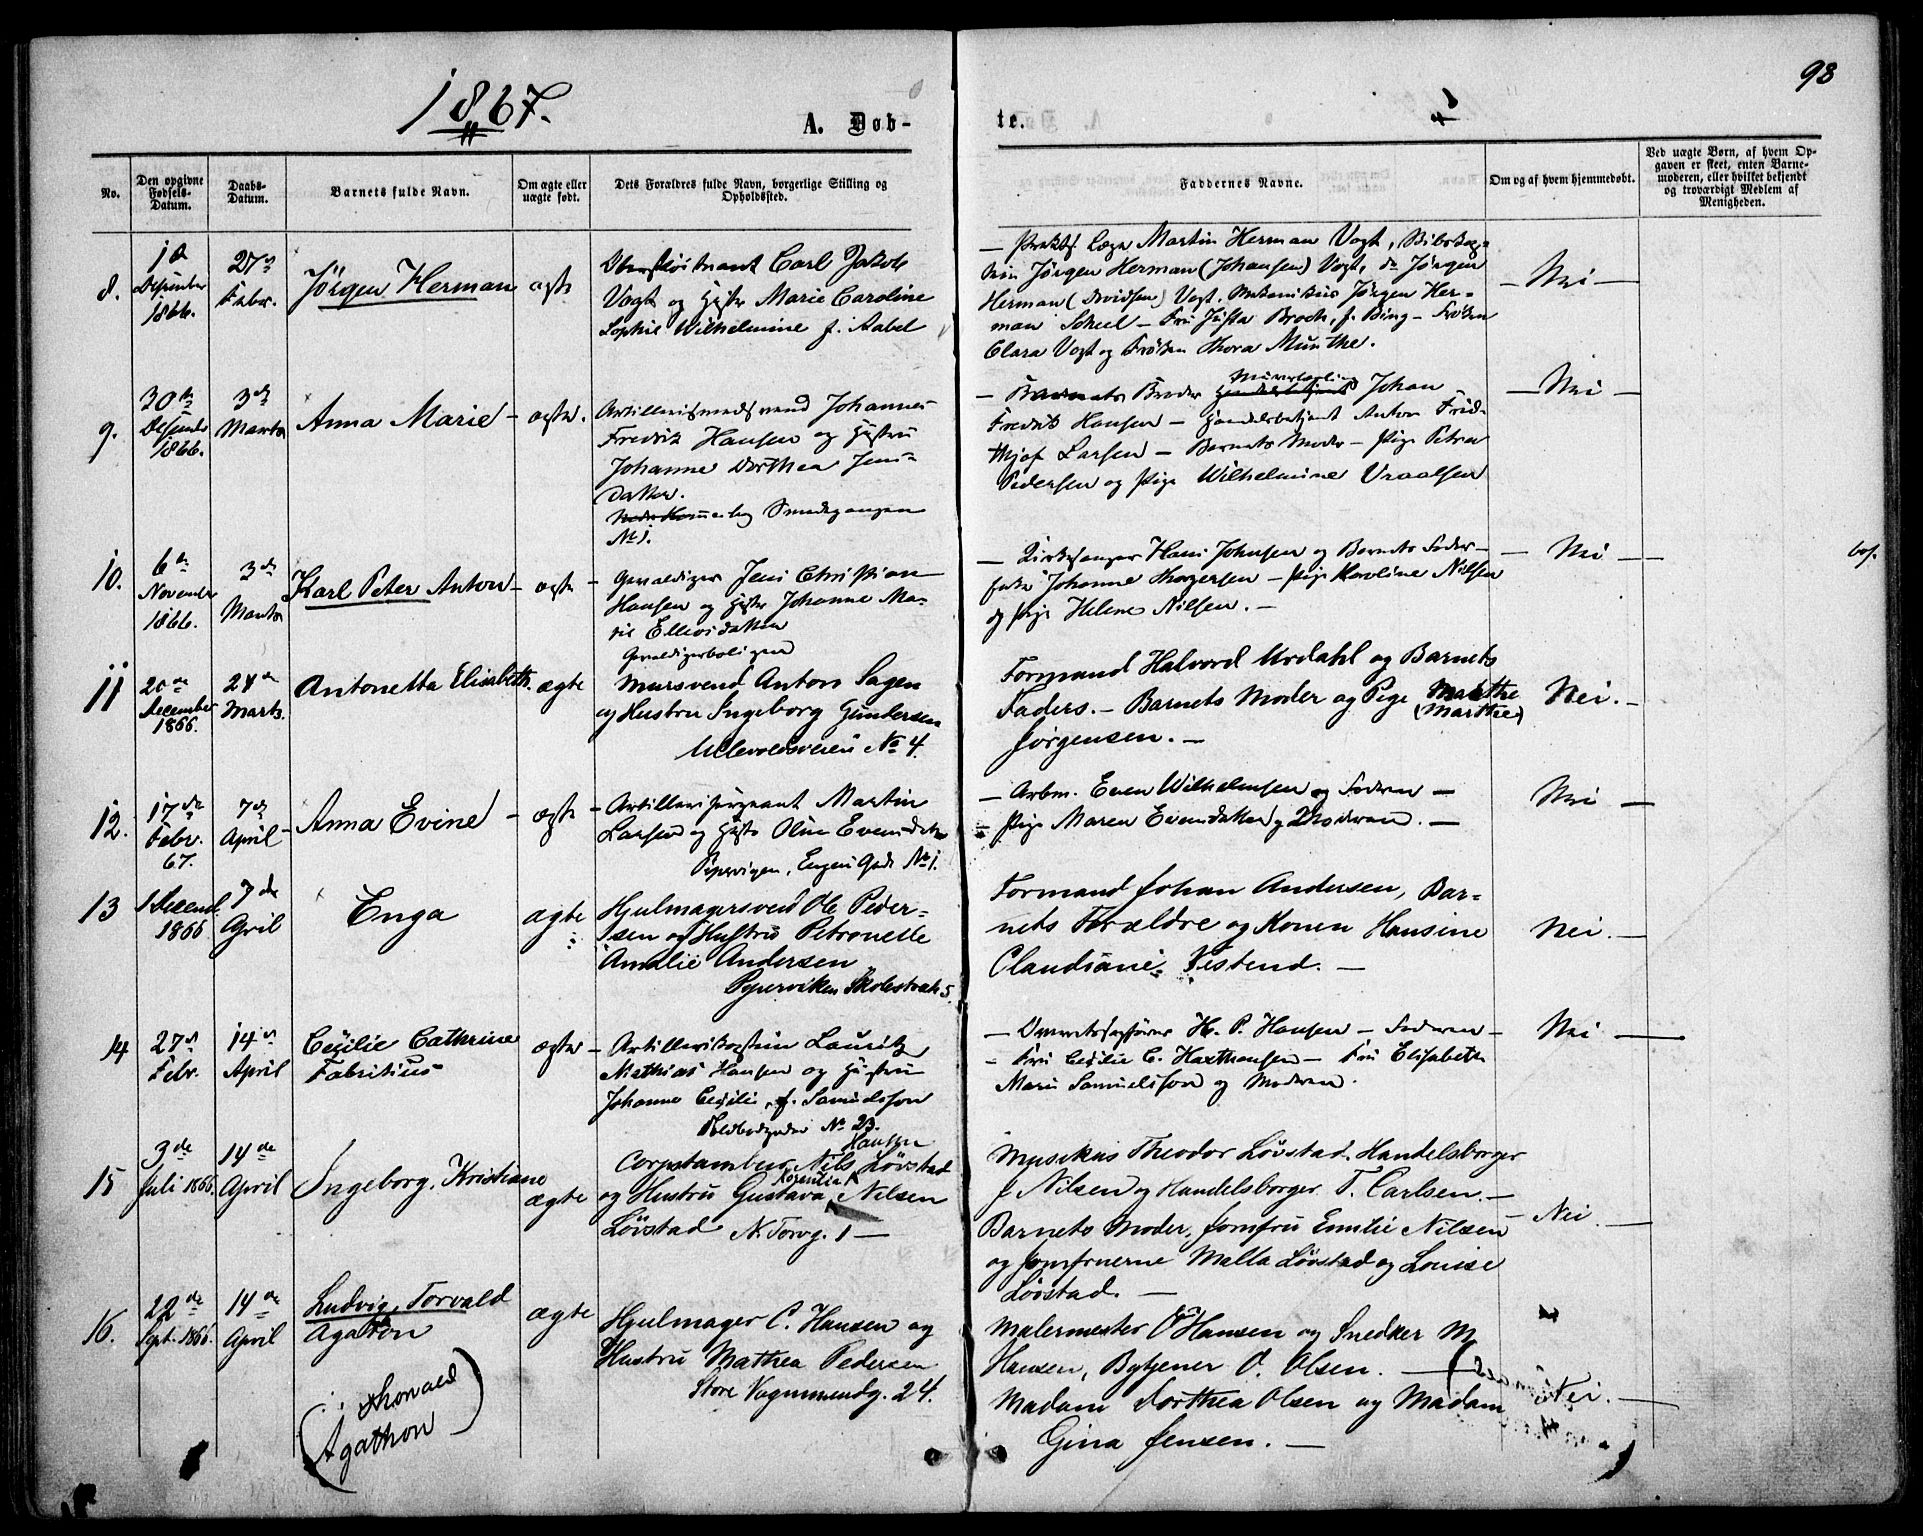 1867.
98
A. Døb-
te.
No.
Den opgivne Fødsels-Datum.
Daabs-Datum.
Barnets fulde Navn.
Om ægte eller uægte født.
Dets Forældres fulde Navn, borgerlige Stilling og Opholdssted.
Faddernes Navne.
Om og af hvem hjemmedøbt.
Ved uægte Børn, af hvem Op-
gaven er skeet, enten Barne-
moderen, eller hvilket bekjendt
og troværdigt Medlem af
Menigheden.
8.
Desember
1866.
27de
Febr.
Jörgen Herman
ægte
Oberstløitnant Carl Jakob
Vogt og Hustr Marie Caroline
Sophie Wilhelmine f. Aabel
– Prakts Læge Martin Herman Vogt,
Jörgen Herman (Johansen) Vogt, Jörgen
Herman (Davidsen) Vogt. Mekanikus Jörgen Her-
man Scheel – Fru Justa Broch, f. Bing – Frøken
Clara Vogt og Frøken Thora Munthe.
– Nei –
9.
30te
Desember
1866.
3de
Marts
Anna Marie –
ægte.
Artillerismedsvend Johannes
Fredrik Hansen og Hustru
Johanne Dorthea Jens-
datter.
Smedgangen
No 1.
– Barnets Broder Murerlærling Johan
Fredrik Hansen – Handelsbetjent Anton Frid-
thjof Larsen – Barnets Moder – Pige Petra
Pedersen og Pige Wilhelmine Vraalsen
– Nei –
10.
6te
November
1866.
3de
Marts
Karl Peter Anton –
ægte –
Gevaldiger Jens Christian
Hansen og Hustr Johanne Ma-
rie Ellevsdatter
Gevaldigerboligen
– Kirkesanger Hans Johnsen og Barnets Fader –
Johanne Thorgersen – Pige Karoline Nilsen
og Pige Helene Nilsen. –
– Nei –
11
20de
December
1866.
24de
Marts.
Antonetta Elisabeth.
ægte
Mursvend Anton Sagen
og Hustru Ingeborg Gundersen
Ullevoldsveien No 4.
Formand Halvord Urdahl og Barnets
Faders. – Barnets Moder og Pige Marthe
(Marthe)
Jørgensen. –
Nei. –
12.
17de
Febr.
67.
7de
April –
Anna Evine –
ægte
– Artillerisergeant Martin
Larsen og Hustr Oline Evensdatter
Pipervigen, Engens Gade No 1.
– Arbm. Even Wilhelmsen og Faderen –
– Pige Maren Evensdatter og Moderen. –
Nei –
13
1 Decemb.
1866
7de
April
Enga
ægte
Hjulmagersvend Ole Peder-
sen og Hustru Petronelle
Amalie Andersen
Pipervíken Skolestræde 5.
Formand Johan Andersen, Bar-
nets Forældre og Konen Hansine
Claudiane Vestend. –
Nei. –
14
27de
Febr.
14de
April
Cecilie Cathrine
Fabritius
ægte –
Artillerikaptein Lauritz
Mathias Hansen og Hustru
Johanne Cecilie, f. Samuelsson
No 23.
– H. P. Hansen – Faderen –
– Fru Cecilie C. Haxthausen – Fru Elisabeth
Marie Samuelsson og Moderen.
Nei –
15
3de
Juli 1866.
14de
April
Ingeborg, Kristiane
ægte
Hansen
Corpstambur, Nils Løvstad
og Hustru Gustava Nilsen
Løvstad N. Torvg. 1 –
Musikus Theodor Løvstad. Handelsborger
J Nilsen og Handelsborger T. Carlsen. –
Barnets Moder, Jomfru Emilie Nilsen
og Jomfruerne Malla Løvstad og Louise
Løvstad. –
– Nei. –
16.
22de
Sept. 1866.
14de
April
Ludvig, Torvald
Agaton
(Thorvald
Agathon)
ægte
Hjulmager C. Hansen og
Hustru Mathea Pedersen
Store Vognmendg. 24.
Malermester O Hansen og Snedker M
Hansen, Bytjener O. Olsen. –
Madam Dorthea Olsen og Madam
Gina Jensen. –
Nei. –